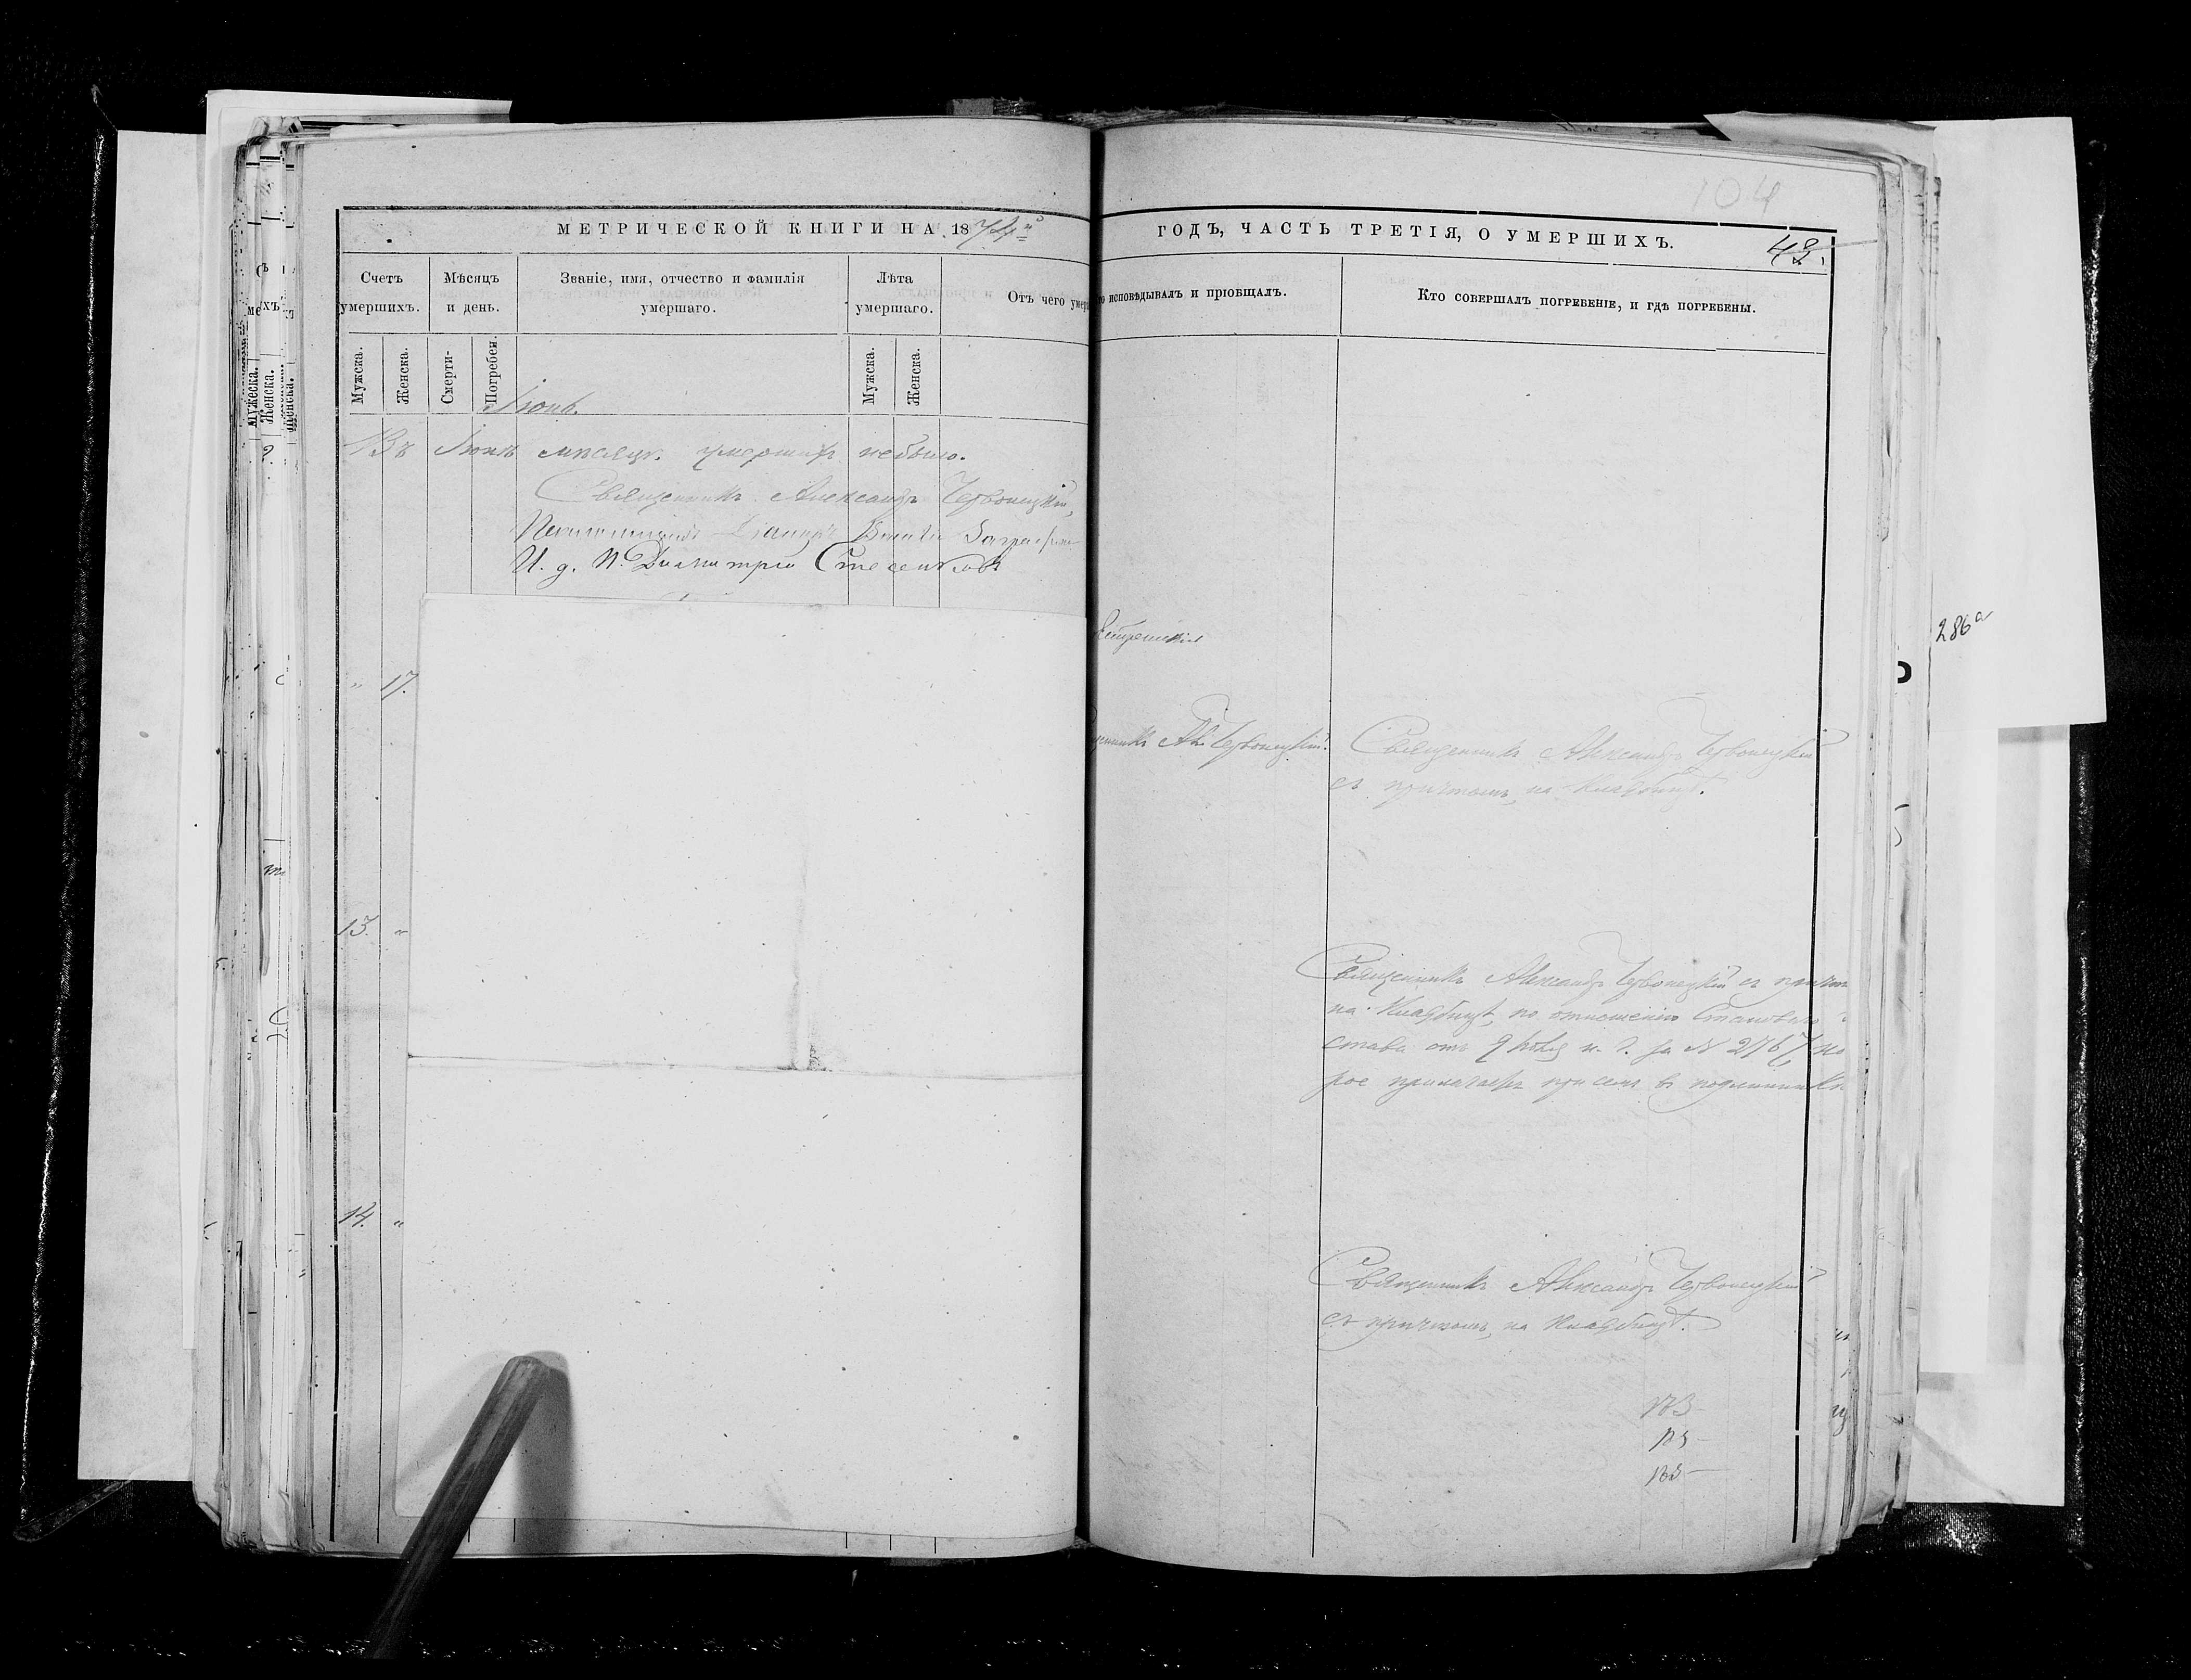 104
МЕТРИЧЕСКОЙ КНИГИ НА 1874
ГОДЪ, ЧАСТЬ ТРЕТІЯ, О УМЕРШИХЪ.
43.
Счетъ умершихъ.
Мѣсяцъ и день.
Званіе, имя, отчество и фамилія умершаго.
Лѣта умершаго.
Отъ чего умер
о исповѣдывалъ и пріобщалъ.
Кто совершалъ погребеніе, и гдѣ погребены.
Мужска.
Женска.
Смерти-
Погребен.
Мужска.
Женска.
Іюнь.
Въ Іюнѣ мѣсяцѣ умершихъ небыло.
Священникъ Александръ Червонецкій,
И. д. П. Димитрій
286а
17.
Священникъ Александръ Червонецкій
съ причтомъ, на кладбищѣ.
13.
Священникъ Александръ Червонецкій съ причтом
на кладбищѣ, по отношенію Становаго
става отъ 9 Іюля с. г. за № 2767, ко
рое прилагается при семъ въ подлинник
14.
Священникъ Александръ Червонецкій
съ причтомъ, на кладбищѣ.